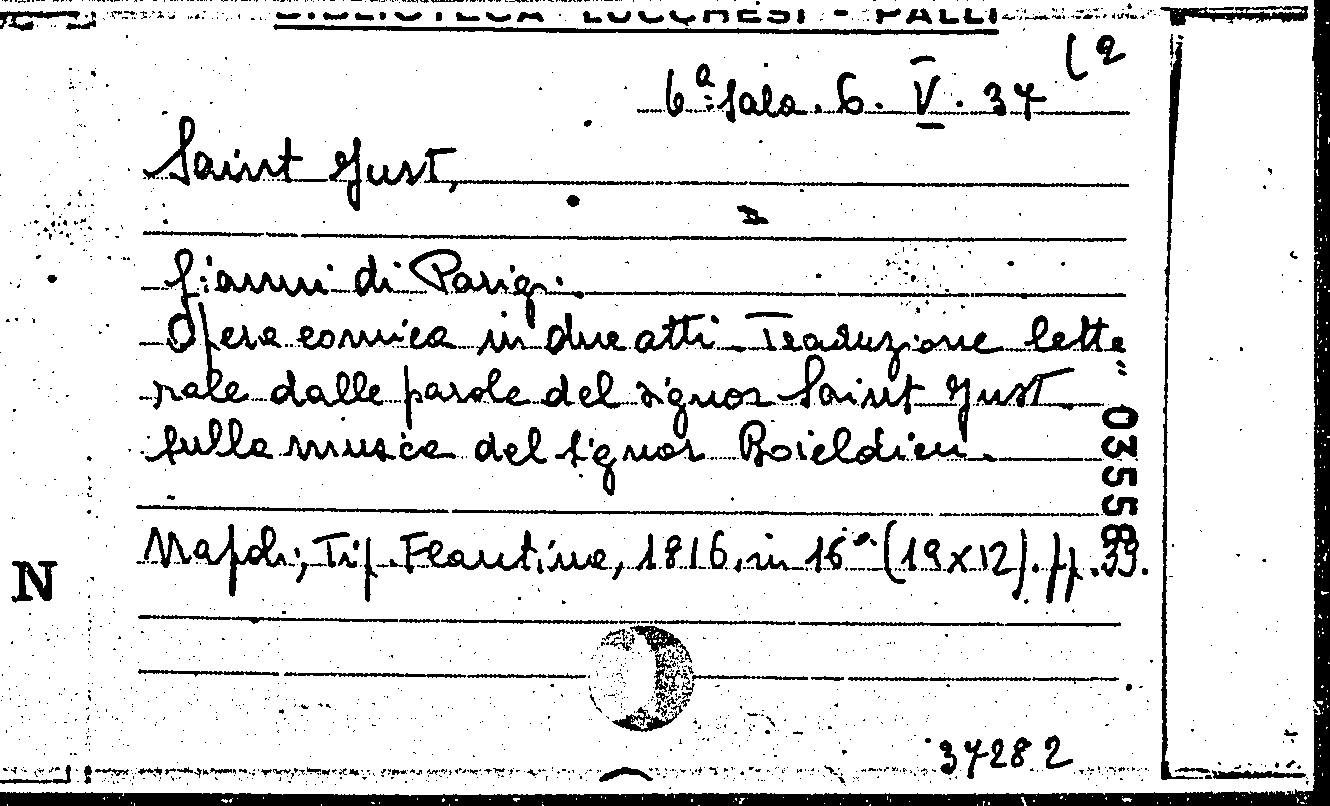 BIBLIOTECA LUCCHESI - PALLI
6ª Sala. 6. V. 37 (2
Saint Just,
Gianni di Parigi.
Opera comica in due atti. Traduzione lette"
rale dalle parole del signor Saint Just
sulla musica del signor Boieldieu.
Napoli, Tip. Flautina, 1816, in 16° (19x12). pp. 39.
035583
N
37282